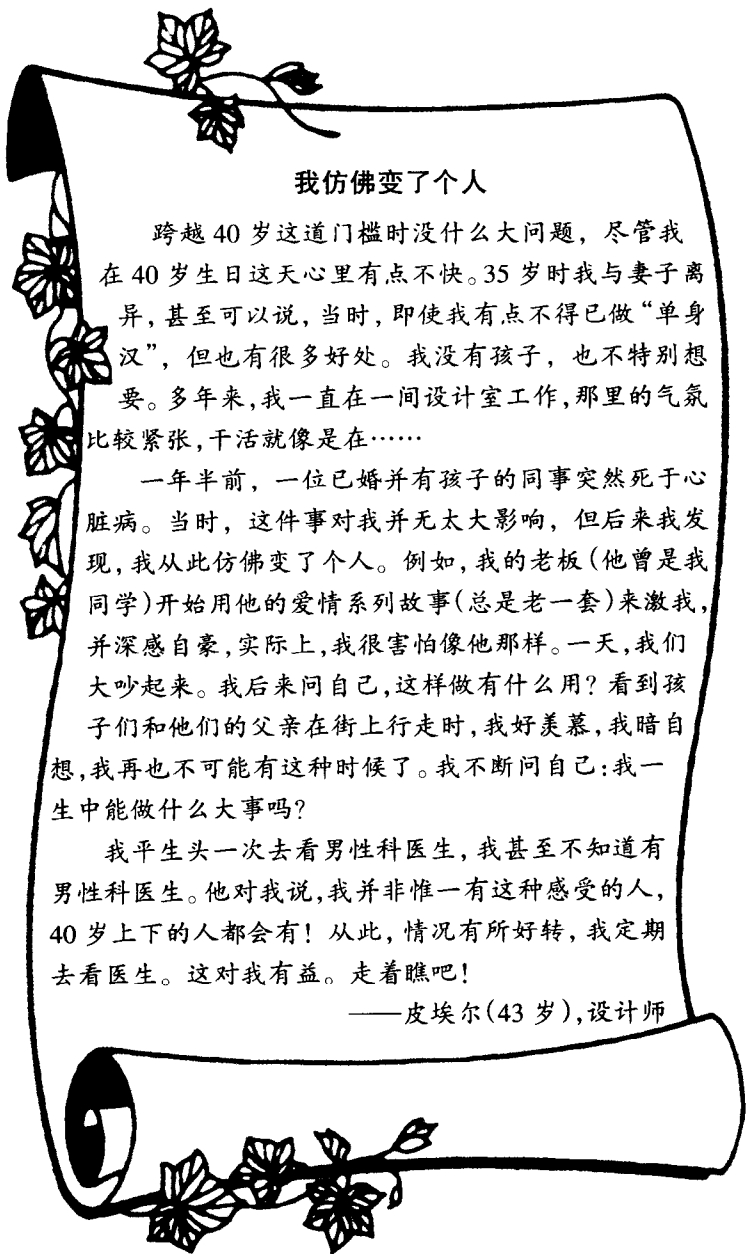 我仿佛变了个人
跨越 40 岁这道门槛时没什么大问题，尽管我
在 40 岁生日这天心里有点不快。35 岁时我与妻子离
异，甚至可以说，当时，即使我有点不得已做“单身
汉”，但也有很多好处。我没有孩子，也不特别想
要。多年来，我一直在一间设计室工作，那里的气氛
比较紧张，干活就像是在……
一年半前，一位已婚并有孩子的同事突然死于心
脏病。当时，这件事对我并无太大影响，但后来我发
现，我从此仿佛变了个人。例如，我的老板（他曾是我
同学）开始用他的爱情系列故事（总是老一套）来激我，
并深感自豪，实际上，我很害怕像他那样。一天，我们
大吵起来。我后来问自己，这样做有什么用？看到孩
子们和他们的父亲在街上行走时，我好羡慕，我暗自
想，我再也不可能有这种时候了。我不断问自己：我一
生中能做什么大事吗？
我平生头一次去看男性科医生，我甚至不知道有
男性科医生。他对我说，我并非惟一有这种感受的人，
40 岁上下的人都会有！从此，情况有所好转，我定期
去看医生。这对我有益。走着瞧吧！
——皮埃尔（43 岁），设计师